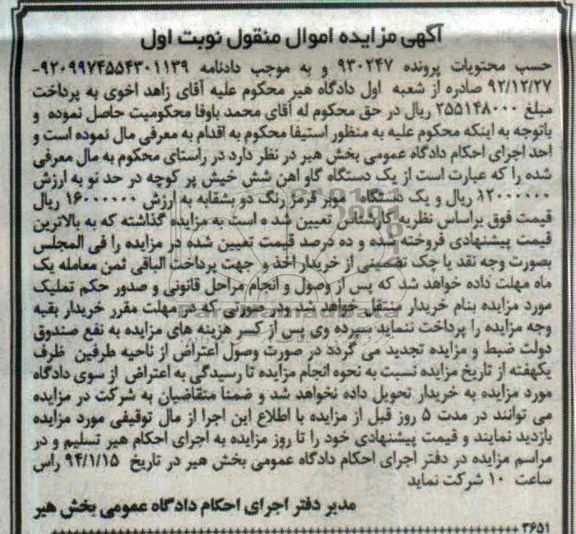 آگهی مزایده اموال منقول نوبت اول
حسب محتویات پرونده ۹۳۰۲۴۷ و به موجب دادنامه ۹۲۰۹۹۷۴۵۵۴۳۰۱۱۳۹-
۹۲/۱۲/۲۷ صادره از شعبه اول دادگاه هیر محکوم علیه آقای زاهد اخوی به پرداخت
مبلغ ۲۵۵۱۴۸۰۰۰ ریال در حق محکوم له آقای محمد باوفا محکومیت حاصل نموده و
باتوجه به اینکه محکوم علیه به منظور استیفا محکوم به اقدام به معرفی مال نموده است و
احد اجرای احکام دادگاه عمومی بخش هیر در نظر دارد در راستای محکوم به مال معرفی
شده را که عبارت است از یک دستگاه گاو اهن شش خیش پر کوچه در حد نو به ارزش
۱۲۰۰۰۰۰۰۰ ریال و یک دستگاه موبر قرمز رنگ دو بشقابه به ارزش ۱۶۰۰۰۰۰۰ ریال
قیمت فوق براساس نظریه کارشناس تعیین شد ه است به مزایده گذاشته که به بالاترین
قیمت پیشنهادی فروخته شده و ده درصد قیمت تعیین شده در مزایده را فی المجلس
بصورت وجه نقد یا چک تضمینی از خریدار اخذ و جهت پرداخت الباقی ثمن معامله یک
ماه مهلت داده خواهد شد که پس از وصول و انجام مراحل قانونی و صدور حکم تملیک
مورد مزایده بنام خریدار منتقل خواهد شد در صورتی که در مهلت مقرر خریدار بقیه
وجه مزایده را پرداخت ننماید سپرده وی پس از کسر هزینه های مزایده به نفع صندوق
دولت ضبط و مزایده تجدید می گردد در صورت وصول اعتراض از ناحیه طرفین ظرف
یکهفته از تاریخ مزایده نسبت به نحوه انجام مزایده تا رسیدگی به اعتراض از سوی دادگاه
مورد مزایده به خریدار تحویل داده نخواهد شد و ضمنا متقاضیان به شرکت در مزایده
می توانند در مدت ۵ روز قبل از مزایده با اطلاع این اجرا از مال توقیفی مورد مزایده
بازدید نمایند و قیمت پیشنهادی خود را تا روز مزایده به اجرای احکام هیر تسلیم و در
مراسم مزایده در دفتر اجرای احکام دادگاه عمومی بخش هیر در تاریخ ۹۴/۱/۱۵ راس
ساعت ۱۰ شرکت نماید
مدیر دفتر اجرای احکام دادگاه عمومی بخش هیر
۳۶۵۱